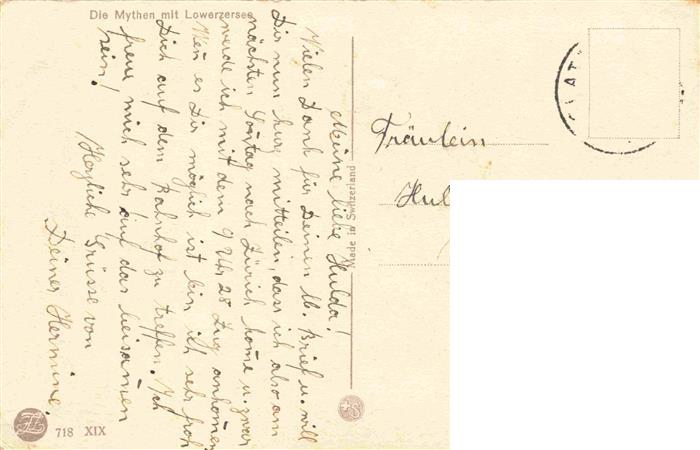 Die Mythen mit Lowerzersee
Meine liebe Hulda!
Vielen Dank für Deinen lb. Brief u. will
Dir nun kurz mitteilen, dass ich also am
nächsten Sontag nach Zürich kome u. zwar
werde ich mit dem 9 Uhr 28 Zug ankomen
Wen es Dir möglich ist bin ich sehr froh
Dich auf dem Bahnhof zu treffen. Ich
freue mich sehr auf das beisamen
sein!
Herzliche Grüsse von
Deiner Hermine.
Made in Switzerland
Fräulein
Hul
718 XIX